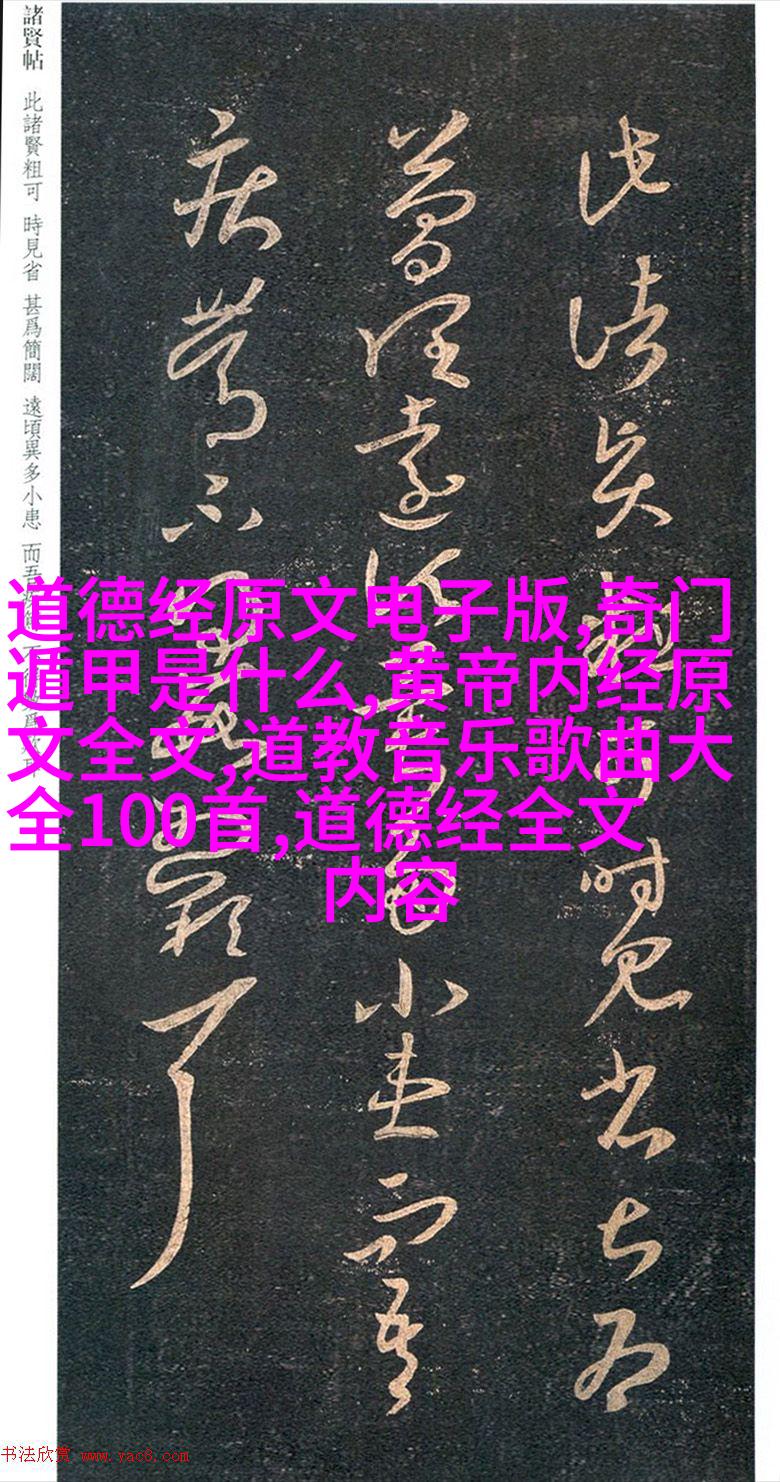 此諸賢粗可時見省甚爲
簡闊遠頃異多小患而吾
疾篤不得數爲歎耳
諸賢帖 此諸賢粗可 時見省 甚爲簡闊 遠頃異多小患 而吾
道德经原文电子版,奇门
遁甲是什么,黄帝内经原
文全文,道教音乐歌曲大
全100首,道德经全文
内容
书法欣赏 www.yac8.com